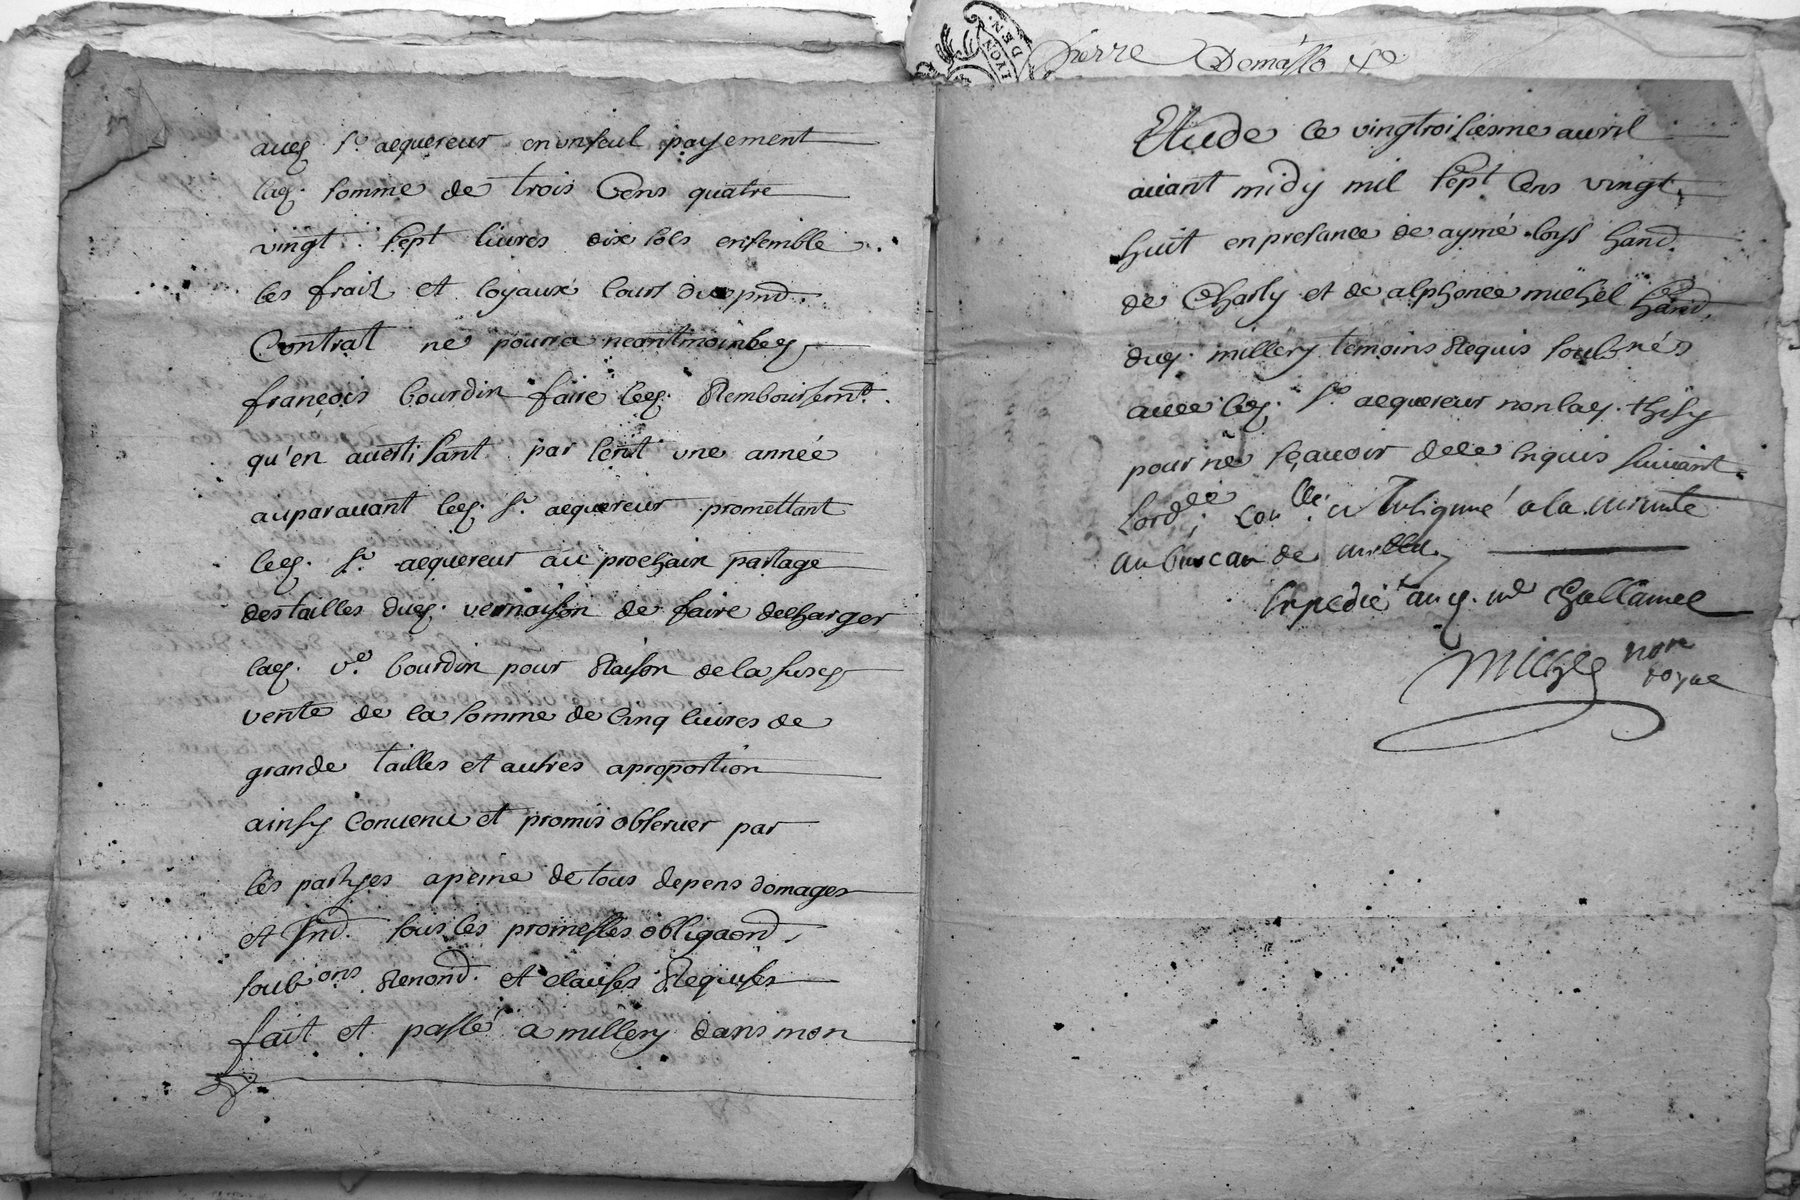 LYON
DEN
Pierre
aueq. Sr. aequereur en un seul payement
laq. somme de trois Cens quatre
vingt sept liures dix sols ensemble
les fraix et loyaux Cousts du pnd.
Contrat ne pourra neantmoins leq.
françois bourdin faire leq. Remboursemt.
qu'en auertissant par lcrit une année
auparauant leq. Sr. aequereur promettant
leq. Sr. aequereur au prochain partage
des tailles duq. vernaison de faire decharger
laq. ve. bourdin pour Raison de la susq
vente de la somme de Cinq liures de
grande tailles et autres a proportion
ainsy Conuenu et promis obseruer par
les partyes a peine de tous depens domages
et Ind. sous les promesses obligaond.
soubons. Renond. et clauses Requises
fait et passé a millery dans mon
Etude ce vingtroisiesme auril
auant midy mil sept Cens vingt
huit en presance de aymé hand.
de Charly et de alphonce michel hand.
duq. millery temoins Requis soubnés
auec leq. Sr. aequereur non laq.
pour ne sçauoir de ce Enquis suiuant
Lordce. a la minute
au bureau de
Expedié auq. Challamel
Michel non
royal